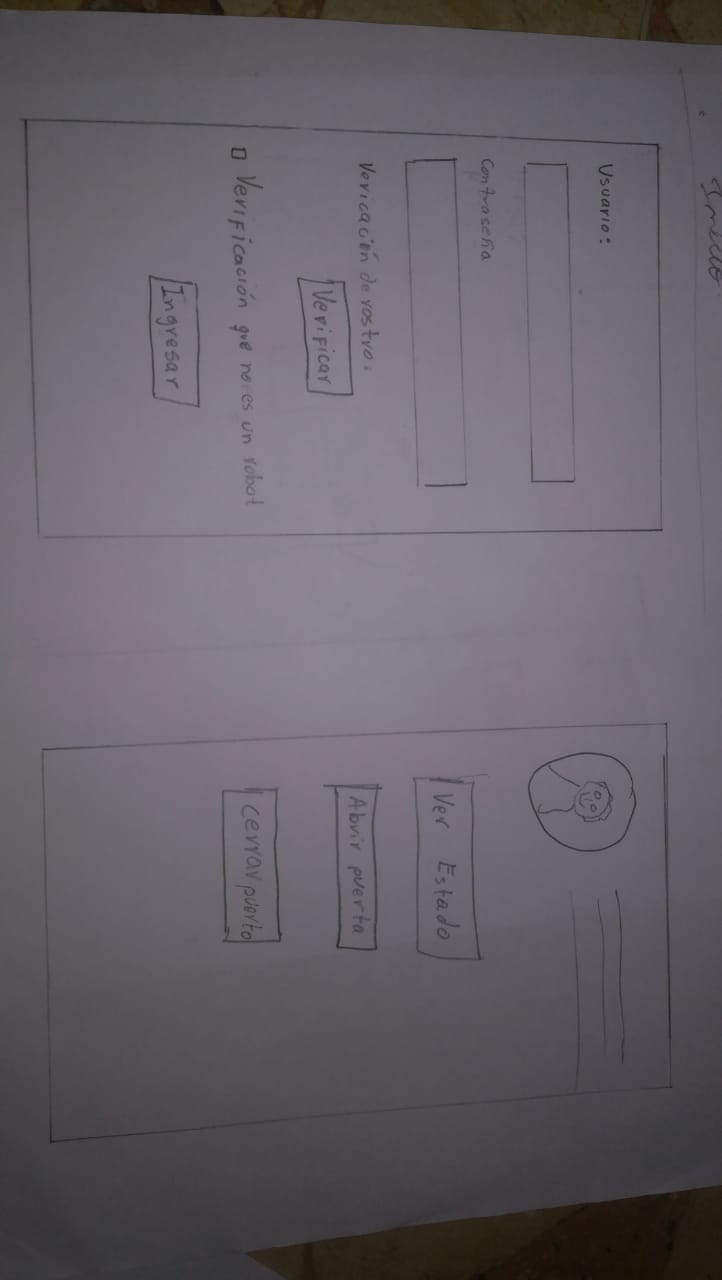 Usuario:
Contraseña
Vericación de rostro:
Verificar
Verificación que no es un robot
Ingresar
Ver Estado
Abrir puerta
Cerrar puerto